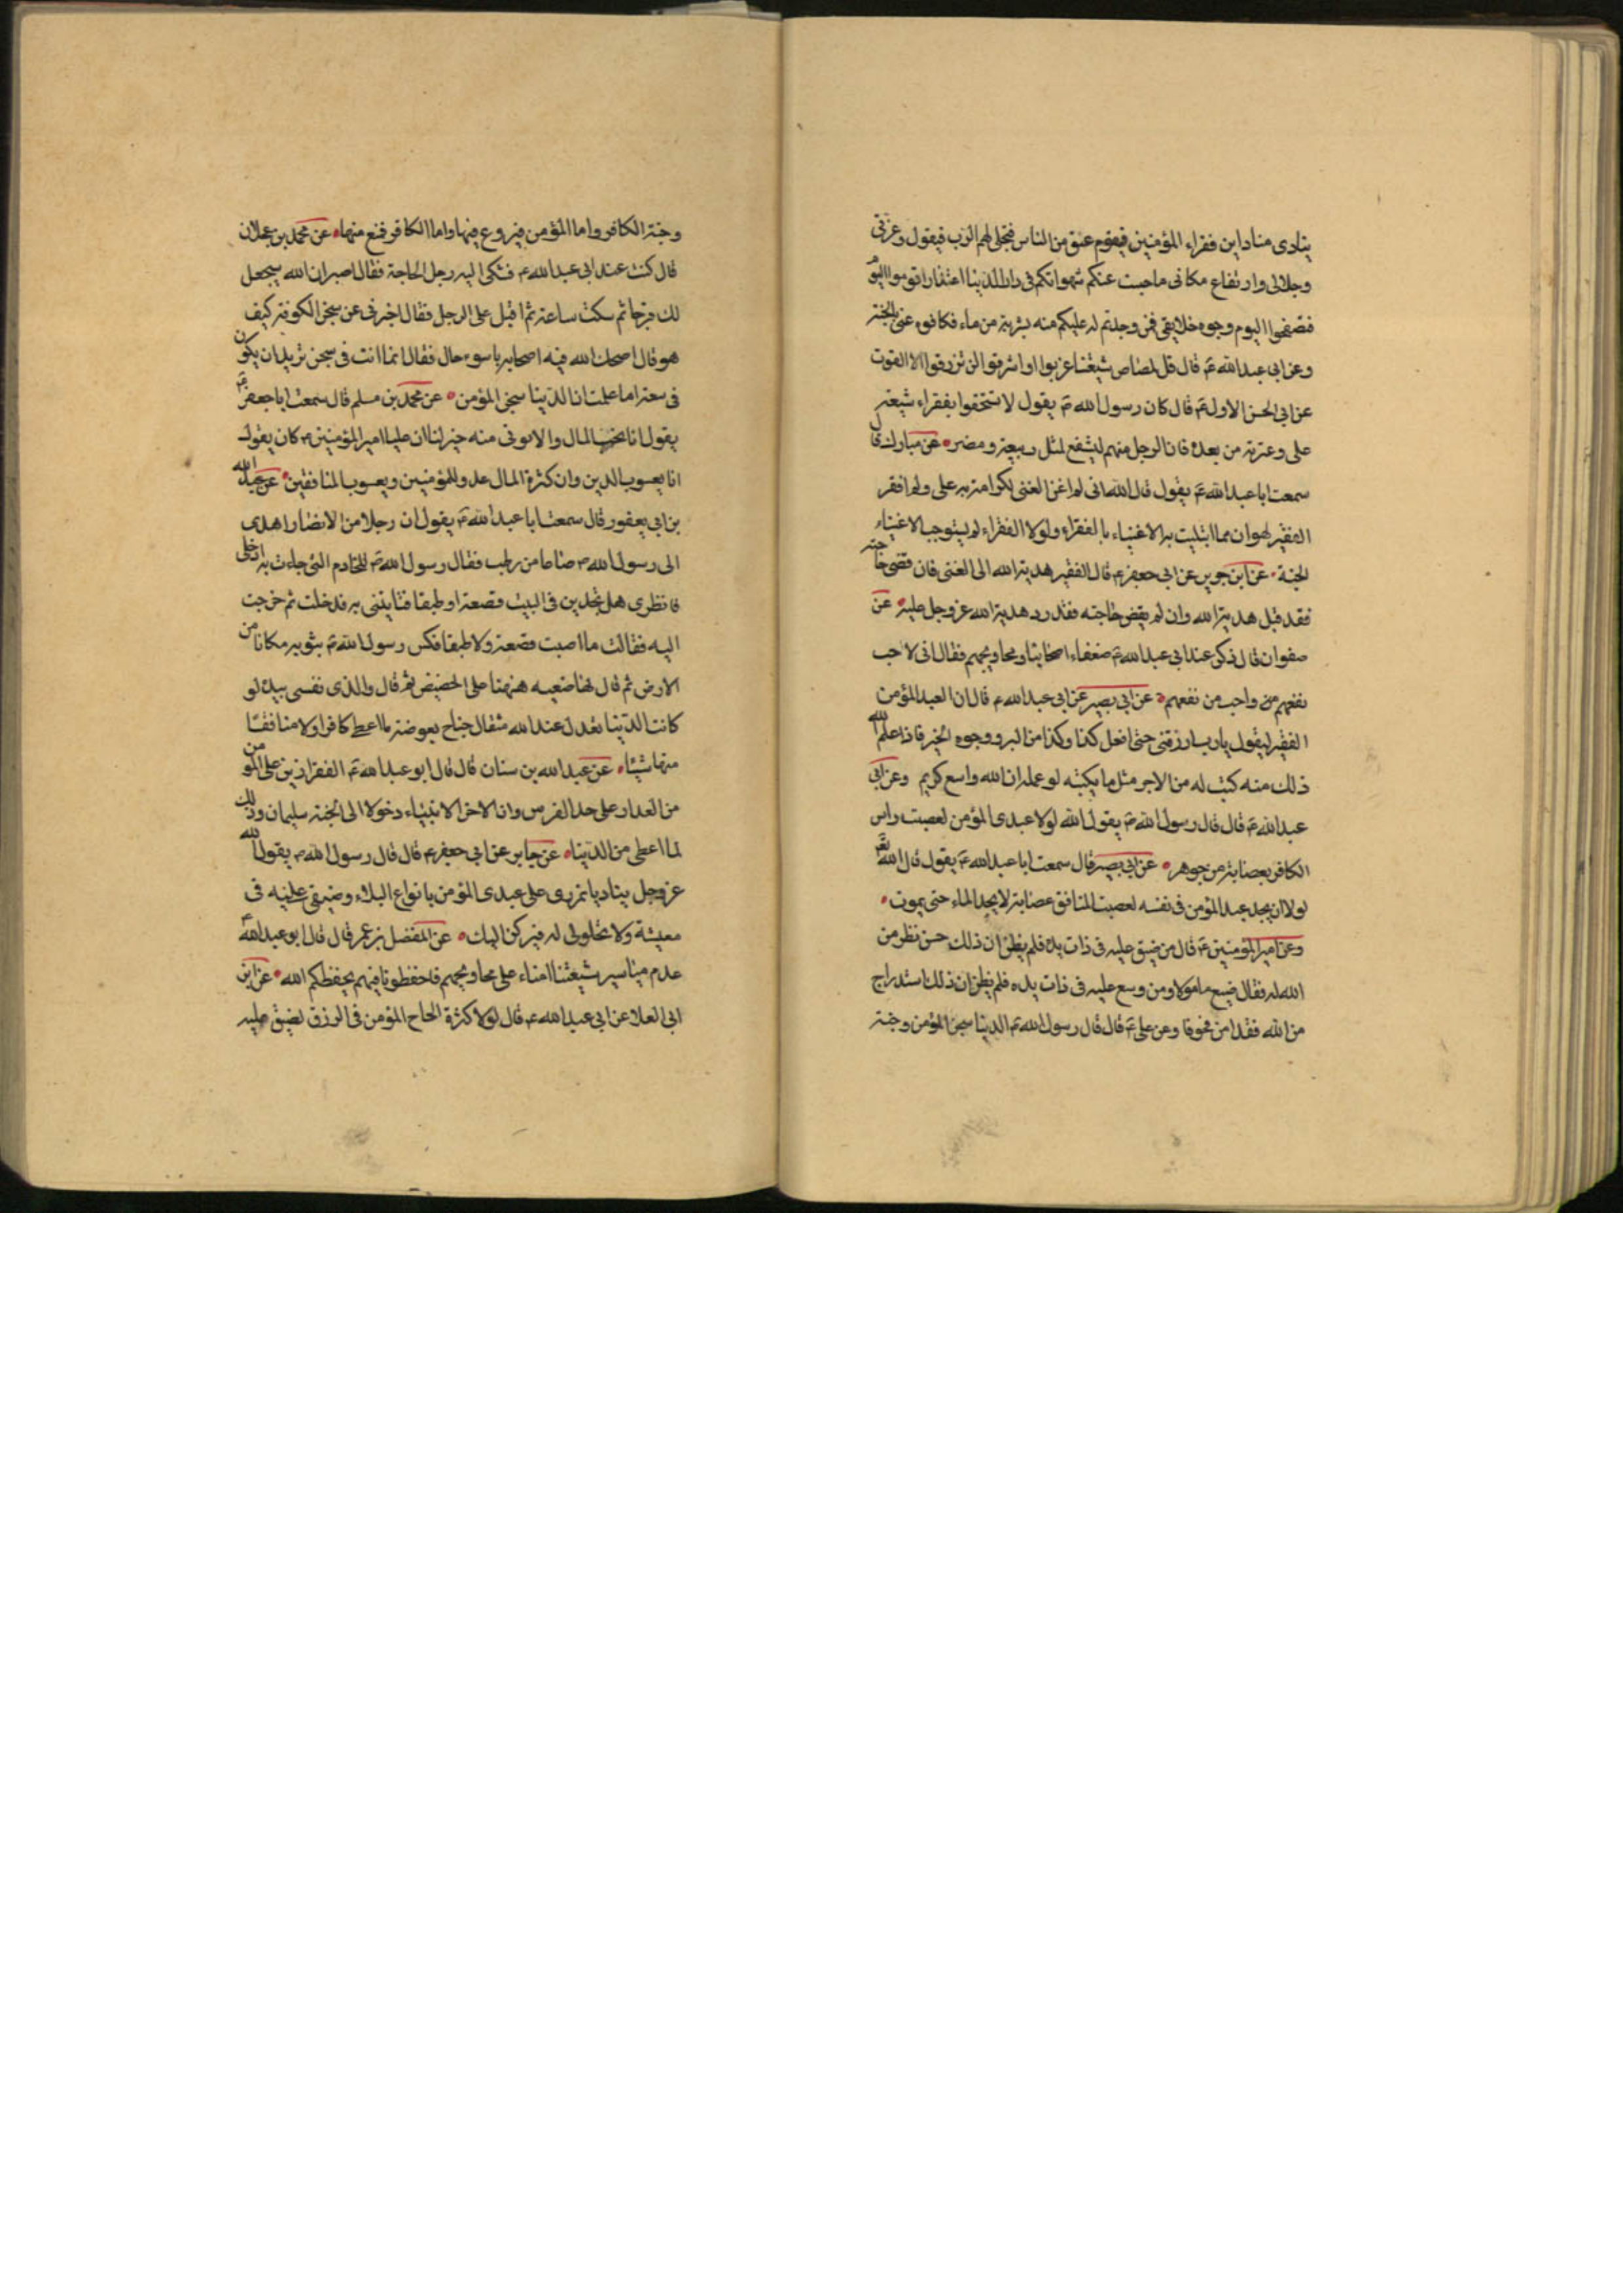 ينادى مناد اين فقراء المؤمنين فيقوم عنق من الناس فتجلى لهم الرب فيقول وعزتى
وجلالى وارتفاع مكانى ما حبست عنكم شهواتكم فى دار الدنيا الا قوموا اليوم
فتصفحوا اليوم وجوه خلايقى فمن وجدتم له عليكم منه بشربة من ماء فكافوه عنى بالجنة
وعن ابى عبد الله ع قال قل لمصاص شيعتنا غربوا او اشرقوا لن ترزقوا الا القوت
عن ابى الحسن الاول ع قال كان رسول الله ص يقول لا تستخفوا بفقراء شيعة
على وعترته من بعده فان الرجل منهم ليشفع لمثل ربيعة ومضر عن مبارك قال
سمعت ابا عبد الله ع يقول قال الله انى لم اغن الغنى لكرامة به على ولم افقر
الفقير لهوان مما ابتليت به الاغنياء بالفقراء ولولا الفقراء لم يستوجب الاغنياء
الجنة عن ابن عن ابى جعفر ع قال الفقير هدية الله الى الغنى فان قضى حاجته
فقد قبل هدية الله وان لم يقض حاجته فقد رد هدية الله عز وجل عليه عن
صفوان قال ذكر عند ابى عبد الله ع ضعفاء اصحابنا ومحاويجهم فقال انى لاحب
نفعهم واحب من نفعهم عن ابى بصير عن ابى عبد الله ع قال ان العبد المؤمن
الفقير ليقول يا رب ارزقنى حتى افعل كذا وكذا من البر ووجوه الخير فاذا علم الله
ذلك منه كتب له من الاجر مثل ما يكتبه لو عمله ان الله واسع كريم وعن ابى
عبد الله ع قال قال رسول الله ص يقول الله لولا عبدى المؤمن لعصبت راس
الكافر بعصابة من جوهر عن ابى بصير قال سمعت ابا عبد الله ع يقول قال الله
لولا ان يجد عبد المؤمن فى نفسه لعصبت المنافق عصابة لا يجد الماء حتى يموت
وعن امير المؤمنين ع قال من ضيق عليه فى ذات يده فلم يظن ان ذلك حسن نظر من
الله له فقال ضيع مامولا ومن وسع عليه فى ذات يده فلم يظن ان ذلك استدراج
من الله فقد امن مخوفا وعن على ع قال قال رسول الله ص الدنيا سجن المؤمن وجنة
وجنة الكافر واما المؤمن فيروع فيها واما الكافر فمتع منها عن محمد بن عجلان
قال كنت عند ابى عبد الله ع فشكى اليه رجل الحاجة فقال اصبر ان الله سيجعل
لك فرجا ثم سكت ساعة ثم اقبل على الرجل فقال اخبرنى عن سجن الكوفة كيف
هو قال اصلحك الله فيه اصحابه باسوء حال فقال انما انت فى سجن تريد ان يكون
فى سعة اما علمت ان الدنيا سجن المؤمن عن محمد بن مسلم قال سمعت ابا جعفر ع
يقول انا المال والا منه خير لنا ان عليا امير المؤمنين ع كان يقول
انا يعسوب الدين وان كثرة المال عدو للمؤمنين ويعسوب المنافقين عن عبد الله
بن ابى يعفور قال سمعت ابا عبد الله ع يقول ان رجلا من الانصار اهدى
الى رسول الله ص صاعا من رطب فقال رسول الله ص للخادم التى جاءت به ادخلى
فانظرى هل تجدين فى البيت قصعة او طبقا فتايتنى به فدخلت ثم خرجت
اليه فقالت ما اصبت قصعة ولا طبقا فكنس رسول الله ص بثوبه مكانا من
الارض ثم قال لها ضعيه هيهنا على الحضيض ثم قال والذى نفسى بيده لو
كانت الدنيا تعدل عند الله مثقال جناح بعوضة ما اعطى كافرا ولا منافقا
منها شيئا عن عبد الله بن سنان قال قال ابو عبد الله ع الفقر ازين على المؤمن
من العذار على خد الفرس وان اخر الانبياء دخولا الى الجنة سليمان وذلك
لما اعطى من الدنيا عن جابر عن ابى جعفر ع قال قال رسول الله ص يقول الله
عز وجل يا دنيا تمررى على عبدى المؤمن بانواع البلاء وضيقى عليه فى
معيشة ولا تحلولى له فيركن اليك عن المفضل بن عمر قال قال ابو عبد الله ع
مياسير شيعتنا امناء على محاويجهم فاحفظونا فيهم يحفظكم الله عن ابن
ابى العلا عن ابى عبد الله ع قال لولا كثرة الحاح المؤمن فى الرزق لضيق عليه